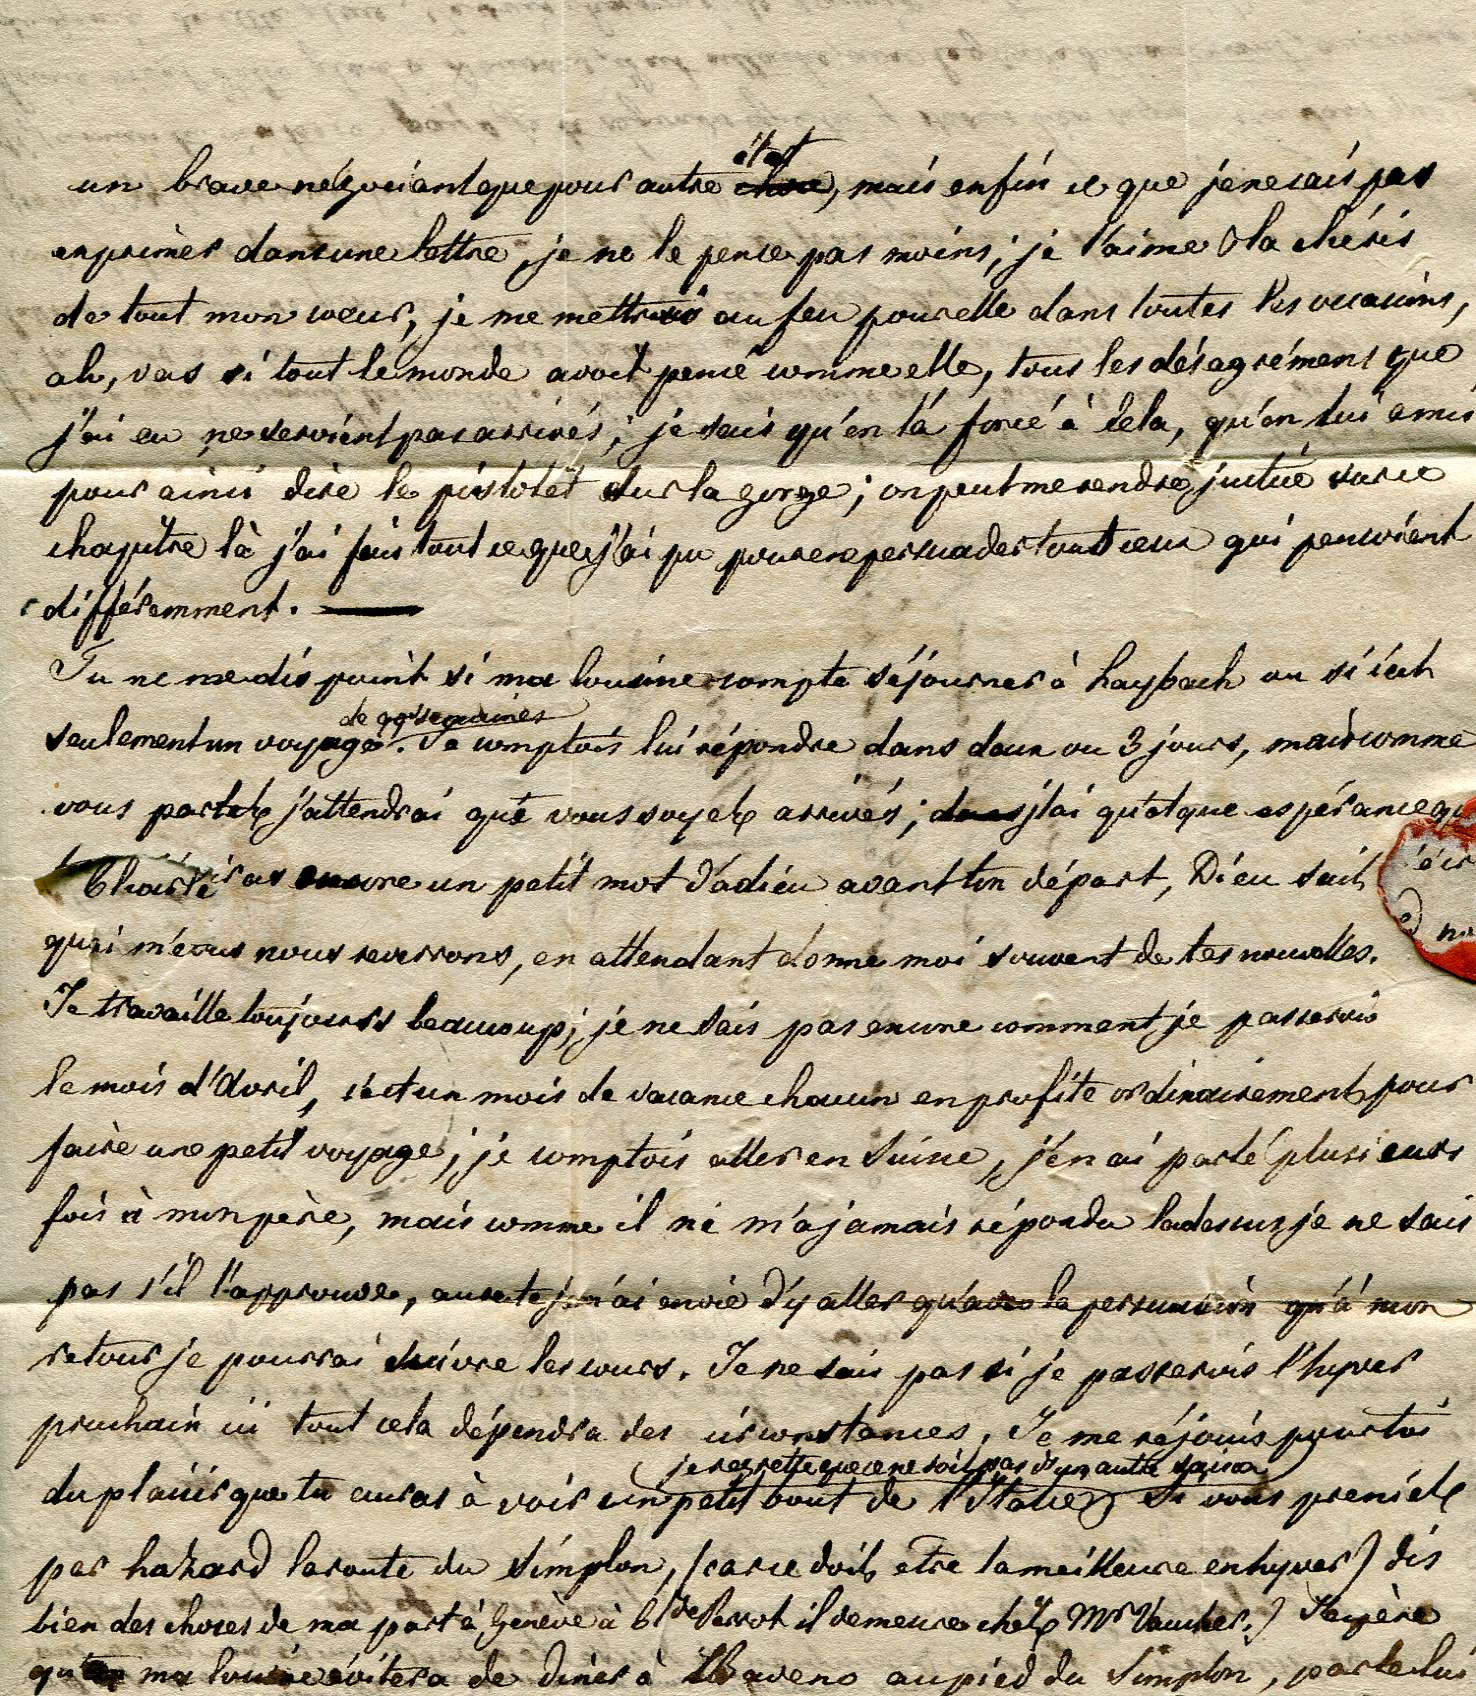 un brave négociant que pour autre état, mais enfin ce que je ne sais pas
exprimer dans une lettre, je ne le pense pas moins; je l'aime & la chéris
de tout mon cœur, je me mettrois au feu pour elle dans toutes les occasions,
ah, vas si tout le monde avoit pensé comme elle, tous les désagrémens que
j'ai eu ne seroient pas arrivés; je sais qu'on l'a forcé à cela, qu'on lui a mis
pour ainsi dire le pistolet sur la gorge; on peut me rendre justice sur ce
chapitre là j'ai fais tout ce que j'ai pu pour en persuader tout ceux qui pensoient
différemment.
Tu ne me dis point si ma Cousine compte séjourner à Laybach ou si c'est
de qqs semaines
seulement un voyage. Je comptois lui répondre dans deux ou 3 jours, mais comme
vous partez j'attendrai que vous soyez arrivés; j'ai quelque espérance qu
encore un petit mot d'adieu avant ton départ, Dieu sait
nous reverrons, en attendant donne moi souvent de tes nouvelles.
Je travaille toujours beaucoup; je ne sais pas encore comment je passerois
le mois d'Avril, c'est un mois de vacance chacun en profite ordinairement pour
faire une petit voyage; je comptois aller en Suisse, j'en ai parlé plusieurs
fois à mon père, mais comme il ne m'a jamais répondu ladessus je ne sais
pas s'il l'approuve, au reste je n'ai envie d'y aller qu'avec la persuasion qu'à mon
retour je pourrai suivre les cours. Je ne sais pas si je passerois l'hyver
prochain ici tout cela dépendra des circonstances. Je me réjouis pour toi
(je regrette que ce ne soit pas ds un autre saison)
du plaisir que tu auras à voir un petit bout de l'Italie, Si vous preniez
par hazard la route du Simplon, (car ce doit etre la meilleure en hyver) dis
bien des choses de ma part à Genève à Perrot il demeure chéz Mr Vaucher.) J'espère
que ma Cousine évitera de diner à Baveno au pied du Simplon, parle lui